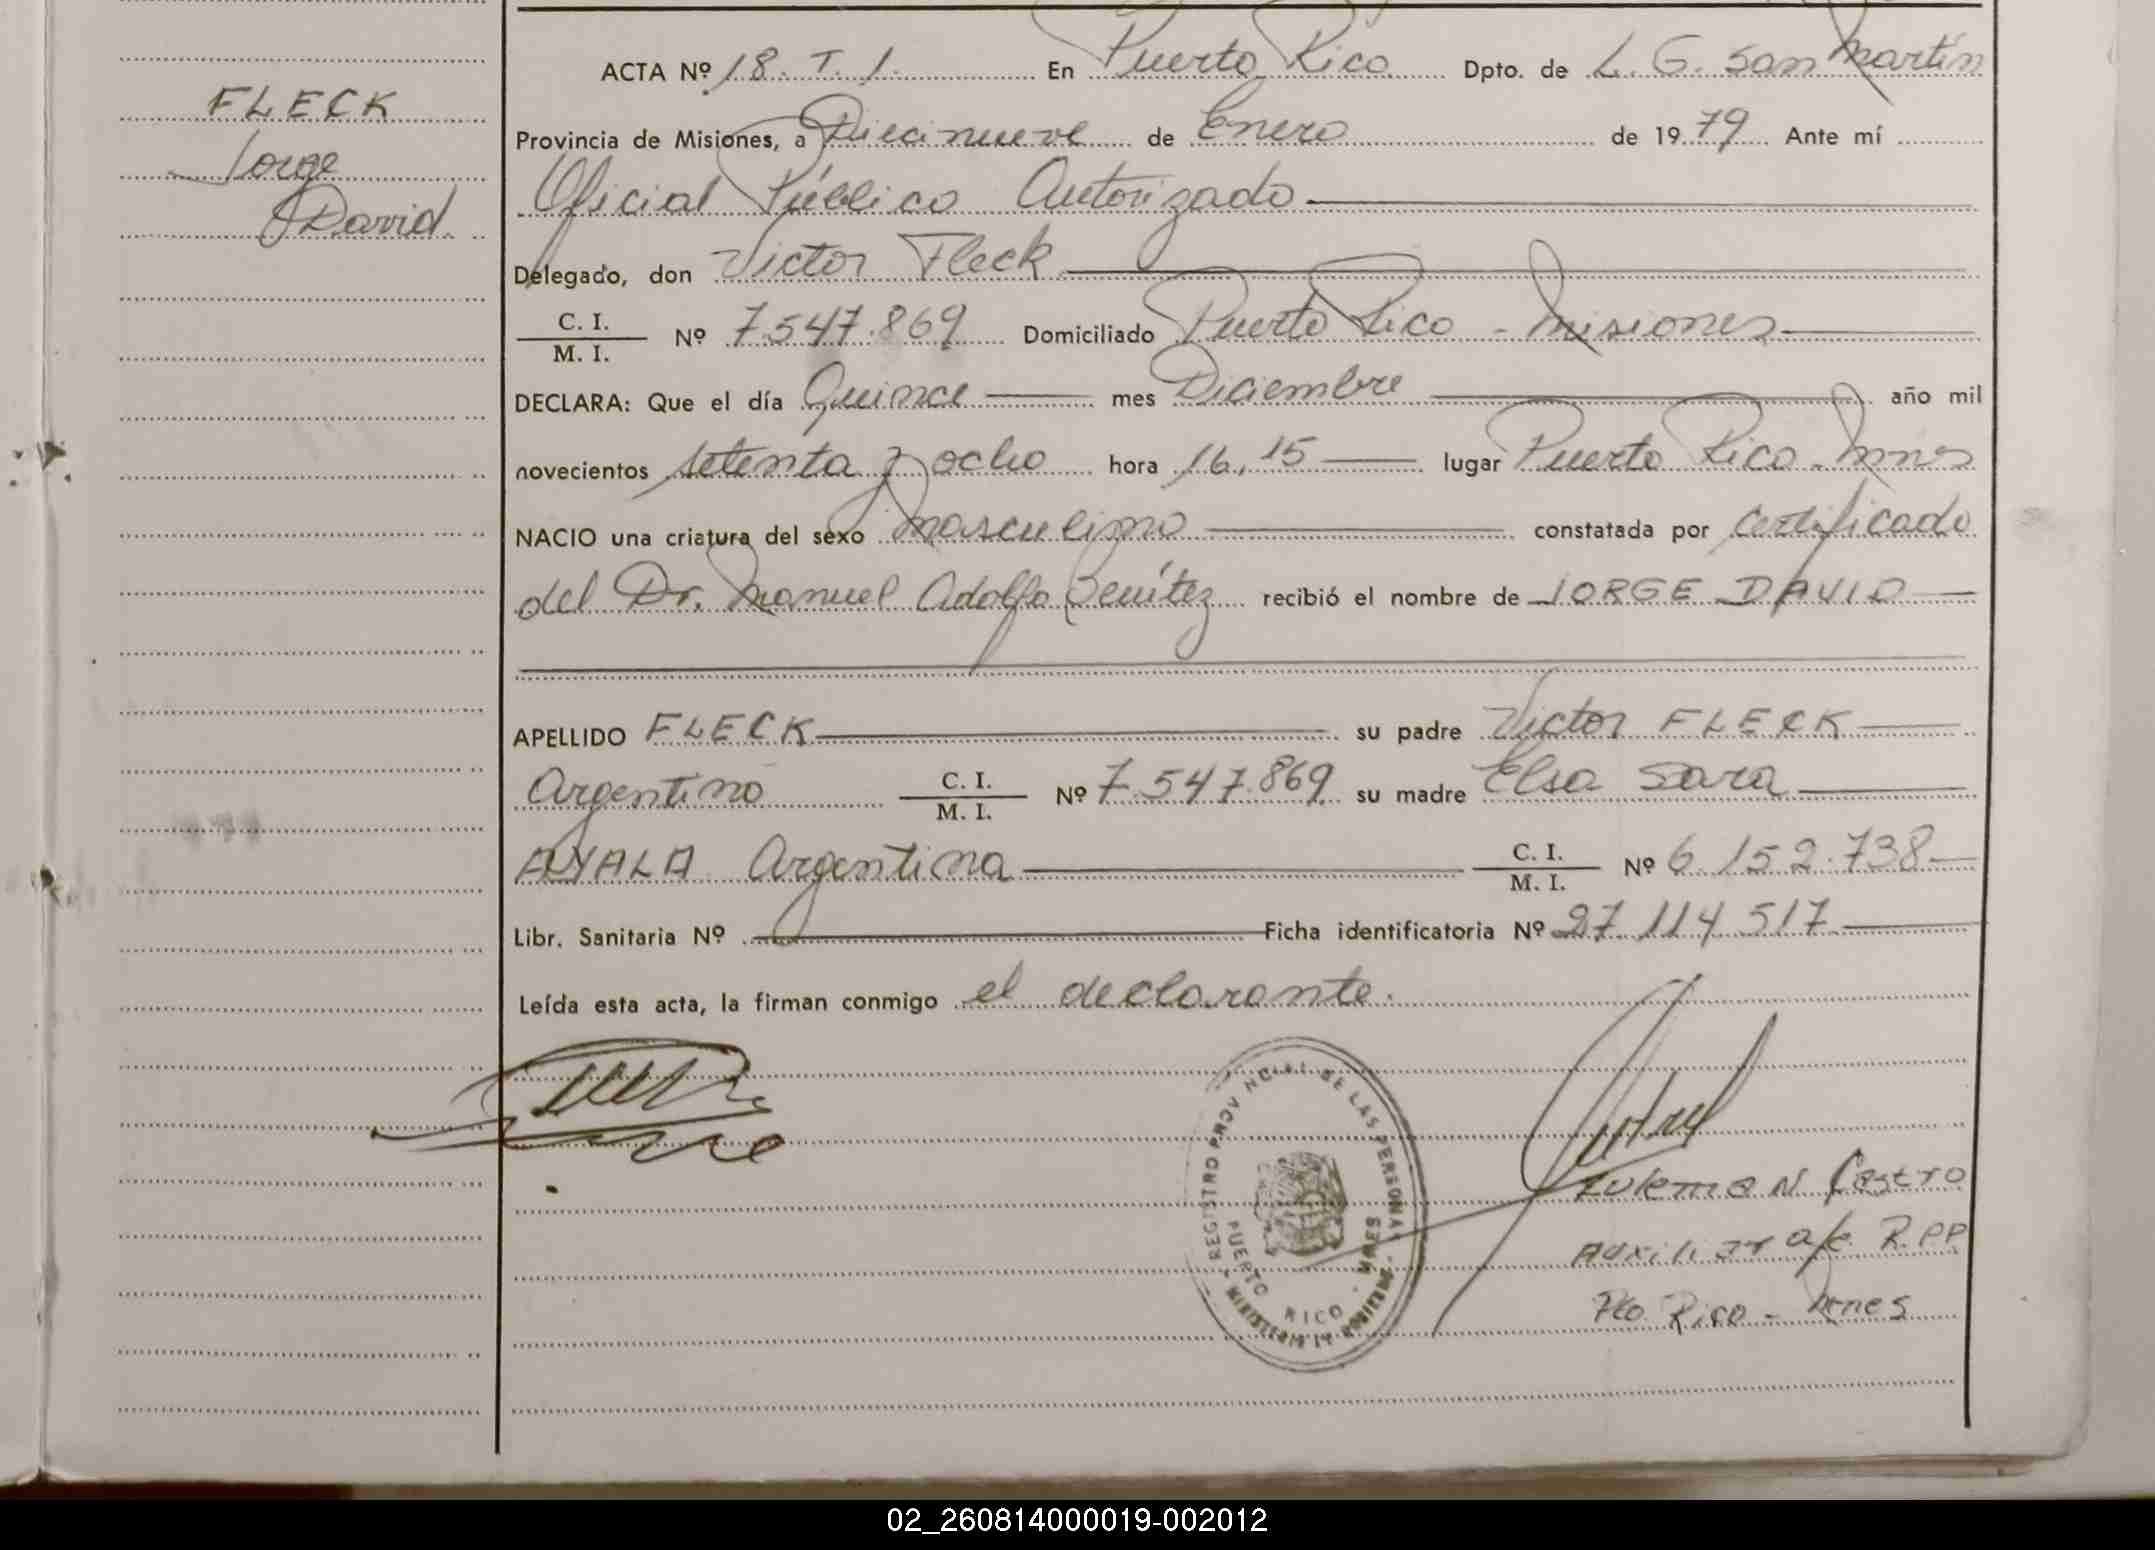 FLECK
Jorge
David
ACTA Nº 18. T. 1. En Puerto Rico Dpto. de L. G. San Martín
Provincia de Misiones, a Diecinueve de Enero de 1979 Ante mí
Oficial Público Autorizado
Delegado, don Victor Fleck
C. I.
M. I. Nº 7.547.869 Domiciliado Puerto Rico - Misiones
DECLARA: Que el día Quince mes Diciembre año mil
novecientos setenta y ocho hora 16,15 lugar Puerto Rico - Mnes
NACIO una criatura del sexo masculino constatada por certificado
del Dr. Manuel Adolfo Benítez recibió el nombre de JORGE DAVID
APELLIDO FLECK su padre Victor FLECK
Argentino C. I. M. I. Nº 7.547.869 su madre Elsa Sara
AYALA Argentina C. I. M. I. Nº 6.152.738
Libr. Sanitaria Nº Ficha identificatoria Nº 27.114.517
Leída esta acta, la firman conmigo el declarante.
REGISTRO PROVINCIAL DE LAS PERSONAS
PUERTO RICO - MNES
MINISTERIO DE GOBIERNO
Zulema N Castro
Auxiliar a/c. R.PP
Pto. Rico - Mnes
02_260814000019-002012